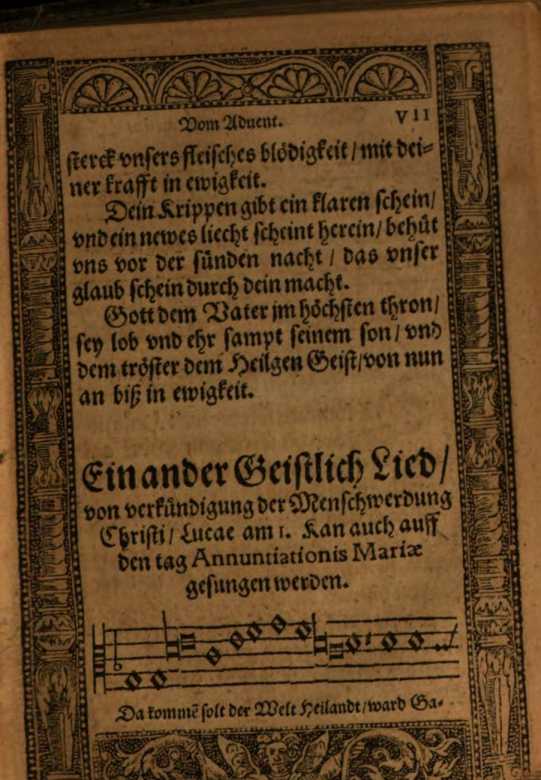 Vom Aduent. VII
sterck vnsers fleisches blödigkeit / mit dei=
ner krafft in ewigkeit.
Dein Krippen gibt ein klaren schein /
vnd ein newes liecht scheint herein / behüt
vns vor der sünden nacht / das vnser
glaub schein durch dein macht.
Gott dem Vater jm höchsten thron /
sey lob vnd ehr sampt seinem son / vnd
dem tröster dem Heilgen Geist / von nun
an biß in ewigkeit.
Ein ander Geistlich Lied /
von verkündigung der Menschwerdung
Christi / Lucae am 1. Kan auch auff
den tag Annuntiationis Mariæ
gesungen werden.
Da kommē solt der Welt Heilandt / ward Ga=